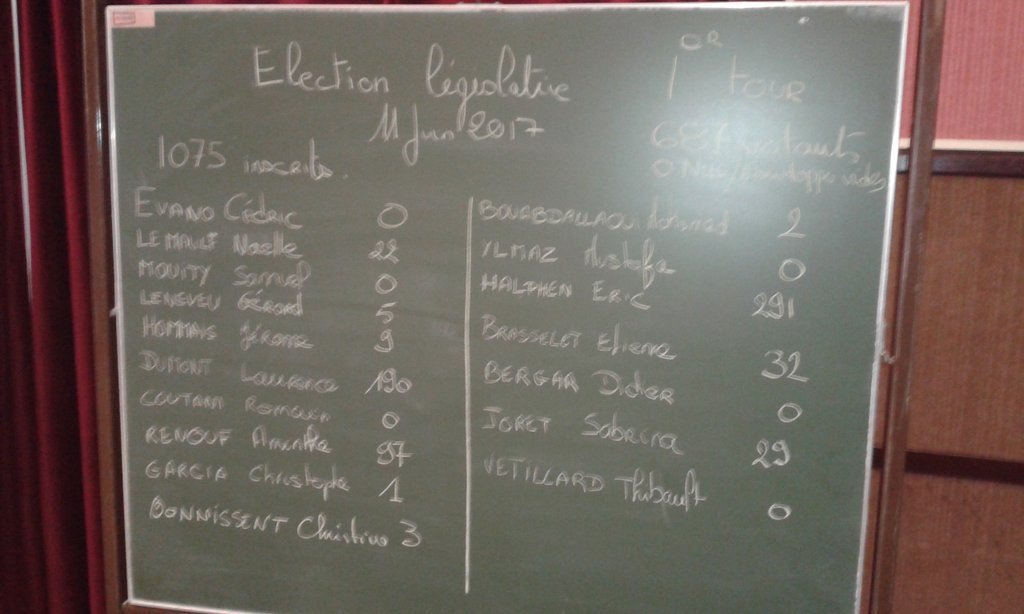 Election législative 1er tour
11 Juin 2017
1075 inscrits. 687 votants
0 Nul/enveloppe vides
EVANO Cédric 0
LEMAULF Naelle 22
MOUITY Samuel 0
LENEVEU Gérard 5
HOMMAIS Jérome 9
DUMONT Laurence 190
COUTARD Romain 0
RENOUF Aminthe 97
GARCIA Christophe 1
BONNISSENT Christine 3
BOUABDALLAOUI Mohamed 2
YLMAZ Mustafa 0
HALPHEN Eric 291
BRASSELET Etienne 32
BERGAR Didier 0
JORET Sabrina 29
VETILLARD Thibault 0